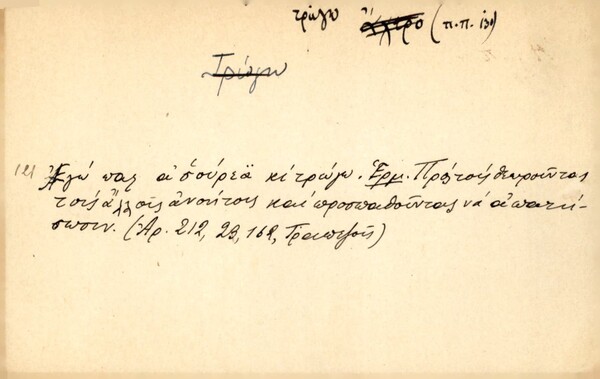 τρώγω (π.π. ἰδ)
Τρώγω
121 Ἐγώ πας ἀσούρεα κὶ τρώγω. Ἑρμ. Πρὸς τοὺς θεωροῦντας
τοὺς ἄλλους ἀνοήτους καὶ προσπαθοῦντας νὰ ἀπατή-
σωσιν. (Ἀρ. 212, 23, 168, Τραπεζοῦς)